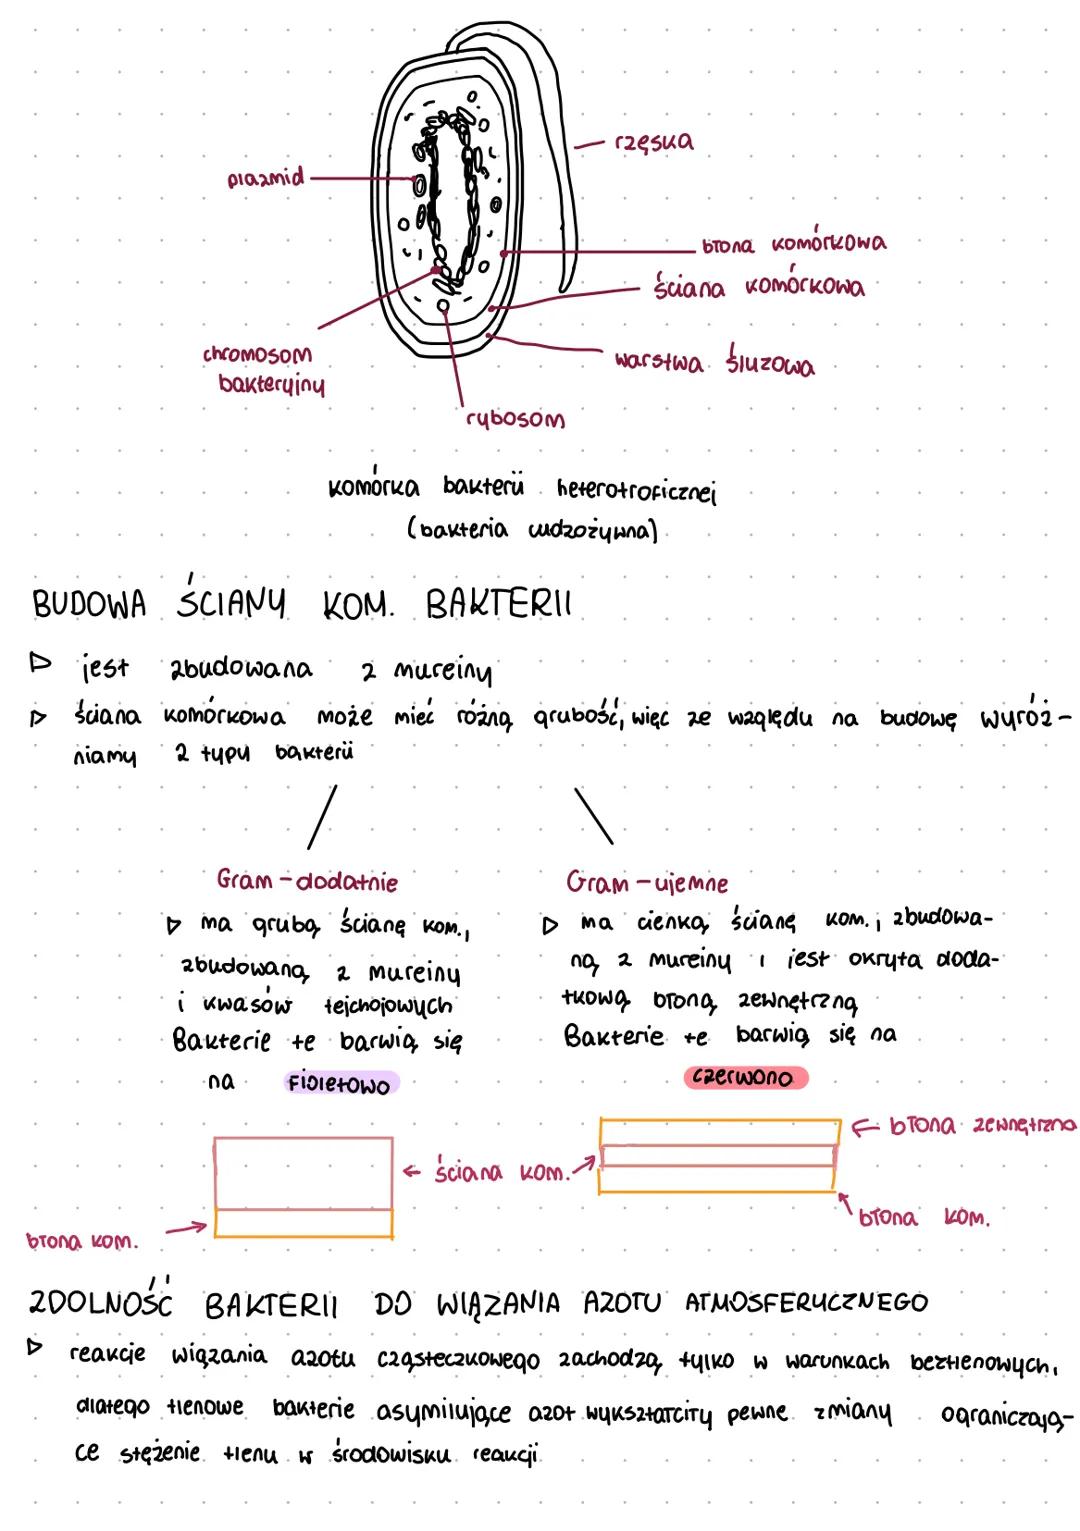 rzęska
plazmid
błona komórkowa
ściana komórkowa
chromosom
bakteryjny
warstwa śluzowa
rybosom
komórka bakterii heterotroficznej
(bakteria cudzożywna)
BUDOWA ŚCIANY KOM. BAKTERII
jest zbudowana z mureiny
ściana komórkowa może mieć różną grubość, więc ze względu na budowę wyróż-
niamy 2 typy bakterii
Gram-dodatnie
ma grubą ścianę kom.,
zbudowaną z mureiny
i kwasów tejchojowych
Bakterie te barwią się
na fioletowo
Gram-ujemne
ma cienką ścianę kom., zbudowa-
ną z mureiny i jest okryta doda-
tkową błoną zewnętrzną
Bakterie te barwią się na
czerwono
← błona zewnętrzna
← ściana kom.
błona kom.
błona kom.
ZDOLNOŚĆ BAKTERII DO WIĄZANIA AZOTU ATMOSFERYCZNEGO
reakcje wiązania azotu cząsteczkowego zachodzą tylko w warunkach beztlenowych,
dlatego tlenowe bakterie asymilujące azot wykształciły pewne zmiany ograniczają-
ce stężenie tlenu w środowisku reakcji